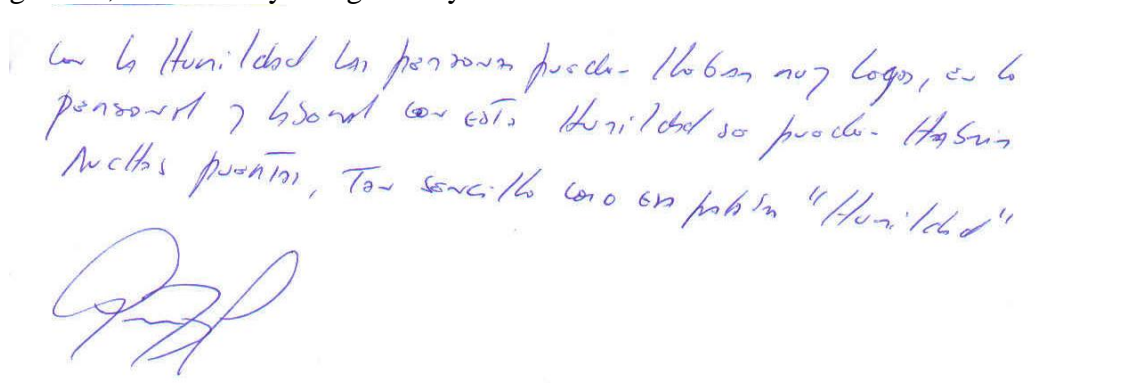 Con la Humildad las personas pueden llebar muy lejos, en lo
personal y laboral con esta Humildad se pueden Habrir
Muchas puertas, Tan sencillo como esa palabra "Humildad"